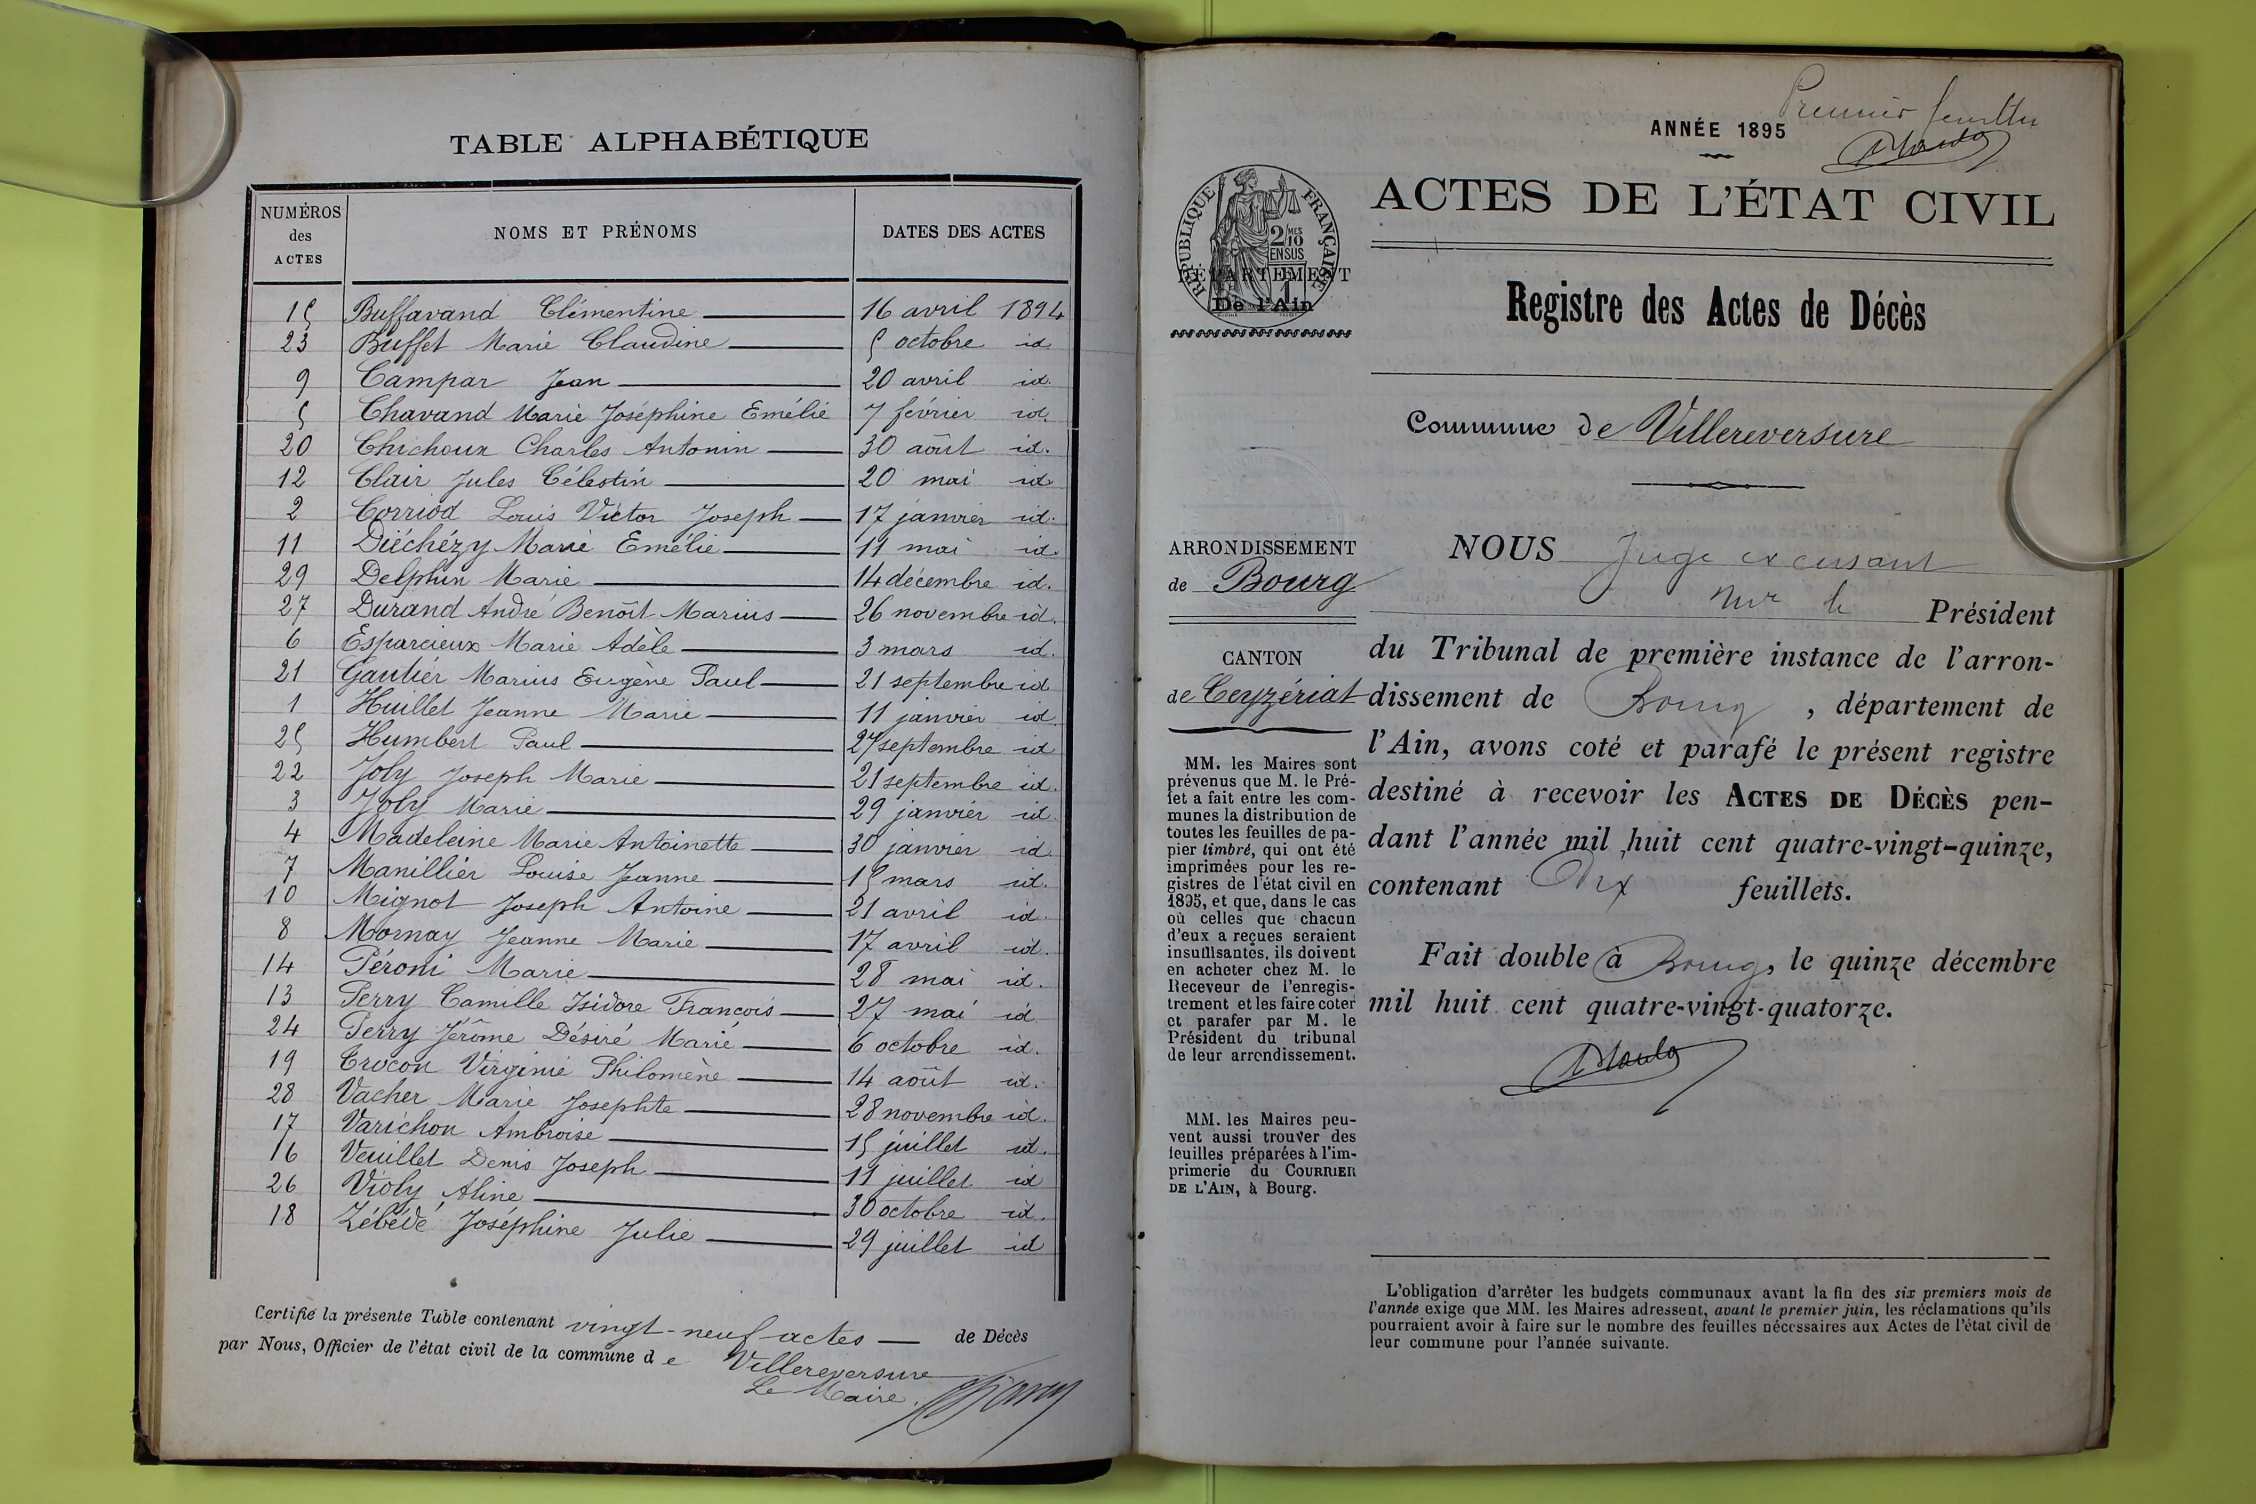 TABLE ALPHABÉTIQUE
NUMÉROS des ACTES NOMS ET PRÉNOMS DATES DES ACTES
15 Buffavand Clémentine 16 avril 1894
23 Buffet Marie Claudine 5 octobre id
9 Campar Jean 20 avril id.
5 Chavand Marie Joséphine Emélie 7 février id.
20 Chichoux Charles Antonin 30 août id.
12 Clair Jules Célestin 20 mai id
2 Corriod Louis Victor Joseph 17 janvier id.
11 Diéchézy Marie Emélie 11 mai id.
29 Delphin Marie 14 décembre id.
27 Durand André Benoît Marius 26 novembre id.
6 Esparcieux Marie Adèle 3 mars id.
21 Gautier Marius Eugène Paul 21 septembre id
1 Huillet Jeanne Marie 11 janvier id
25 Humbert Paul 27 septembre id
22 Joly Joseph Marie 21 septembre id.
3 Joly Marie 29 janvier id
4 Madeleine Marie Antoinette 30 janvier id
7 Manillier Louise Jeanne 15 mars id.
10 Mignot Joseph Antoine 21 avril id.
8 Mornay Jeanne Marie 17 avril id.
14 Péroni Marie 28 mai id.
13 Perry Camille Isidore François 27 mai id
24 Perry Jérôme Désiré Marie 6 octobre id.
19 Trocon Virginie Philomène 14 août id.
28 Vacher Marie Josephte 28 novembre id.
17 Varichon Ambroise 15 juillet id.
16 Veuillet Denis Joseph 11 juillet id
26 Violy Aline 30 octobre id.
18 Zébédé Joséphine Julie 29 juillet id
Certifié la présente Table contenant vingt-neuf actes de Décès
par Nous, Officier de l'état civil de la commune de Villereversure
Le Maire.
Premier feuillet
ANNÉE 1895
ACTES DE L'ÉTAT CIVIL
RÉPUBLIQUE FRANÇAISE
2/10 MES
EN SUS
DÉPARTEMENT
De l'Ain
Registre des Actes de Décès
Commune de Villereversure
ARRONDISSEMENT
de Bourg
CANTON
de Ceyzériat
MM. les Maires sont
prévenus que M. le Pré-
fet a fait entre les com-
munes la distribution de
toutes les feuilles de pa-
pier timbré, qui ont été
imprimées pour les re-
gistres de l'état civil en
1895, et que, dans le cas
où celles que chacun
d'eux a reçues seraient
insuffisantes, ils doivent
en acheter chez M. le
Receveur de l'enregis-
trement et les faire coter
et parafer par M. le
Président du tribunal
de leur arrondissement.
MM. les Maires peu-
vent aussi trouver des
feuilles préparées à l'im-
primerie du COURRIER
DE L'AIN, à Bourg.
NOUS Juge excusant
Mr le Président
du Tribunal de première instance de l'arron-
dissement de Bourg, département de
l'Ain, avons coté et parafé le présent registre
destiné à recevoir les ACTES DE DÉCÈS pen-
dant l'année mil huit cent quatre-vingt-quinze,
contenant Dix feuillets.
Fait double à Bourg, le quinze décembre
mil huit cent quatre-vingt-quatorze.
L'obligation d'arrêter les budgets communaux avant la fin des six premiers mois de
l'année exige que MM. les Maires adressent, avant le premier juin, les réclamations qu'ils
pourraient avoir à faire sur le nombre des feuilles nécessaires aux Actes de l'état civil de
leur commune pour l'année suivante.